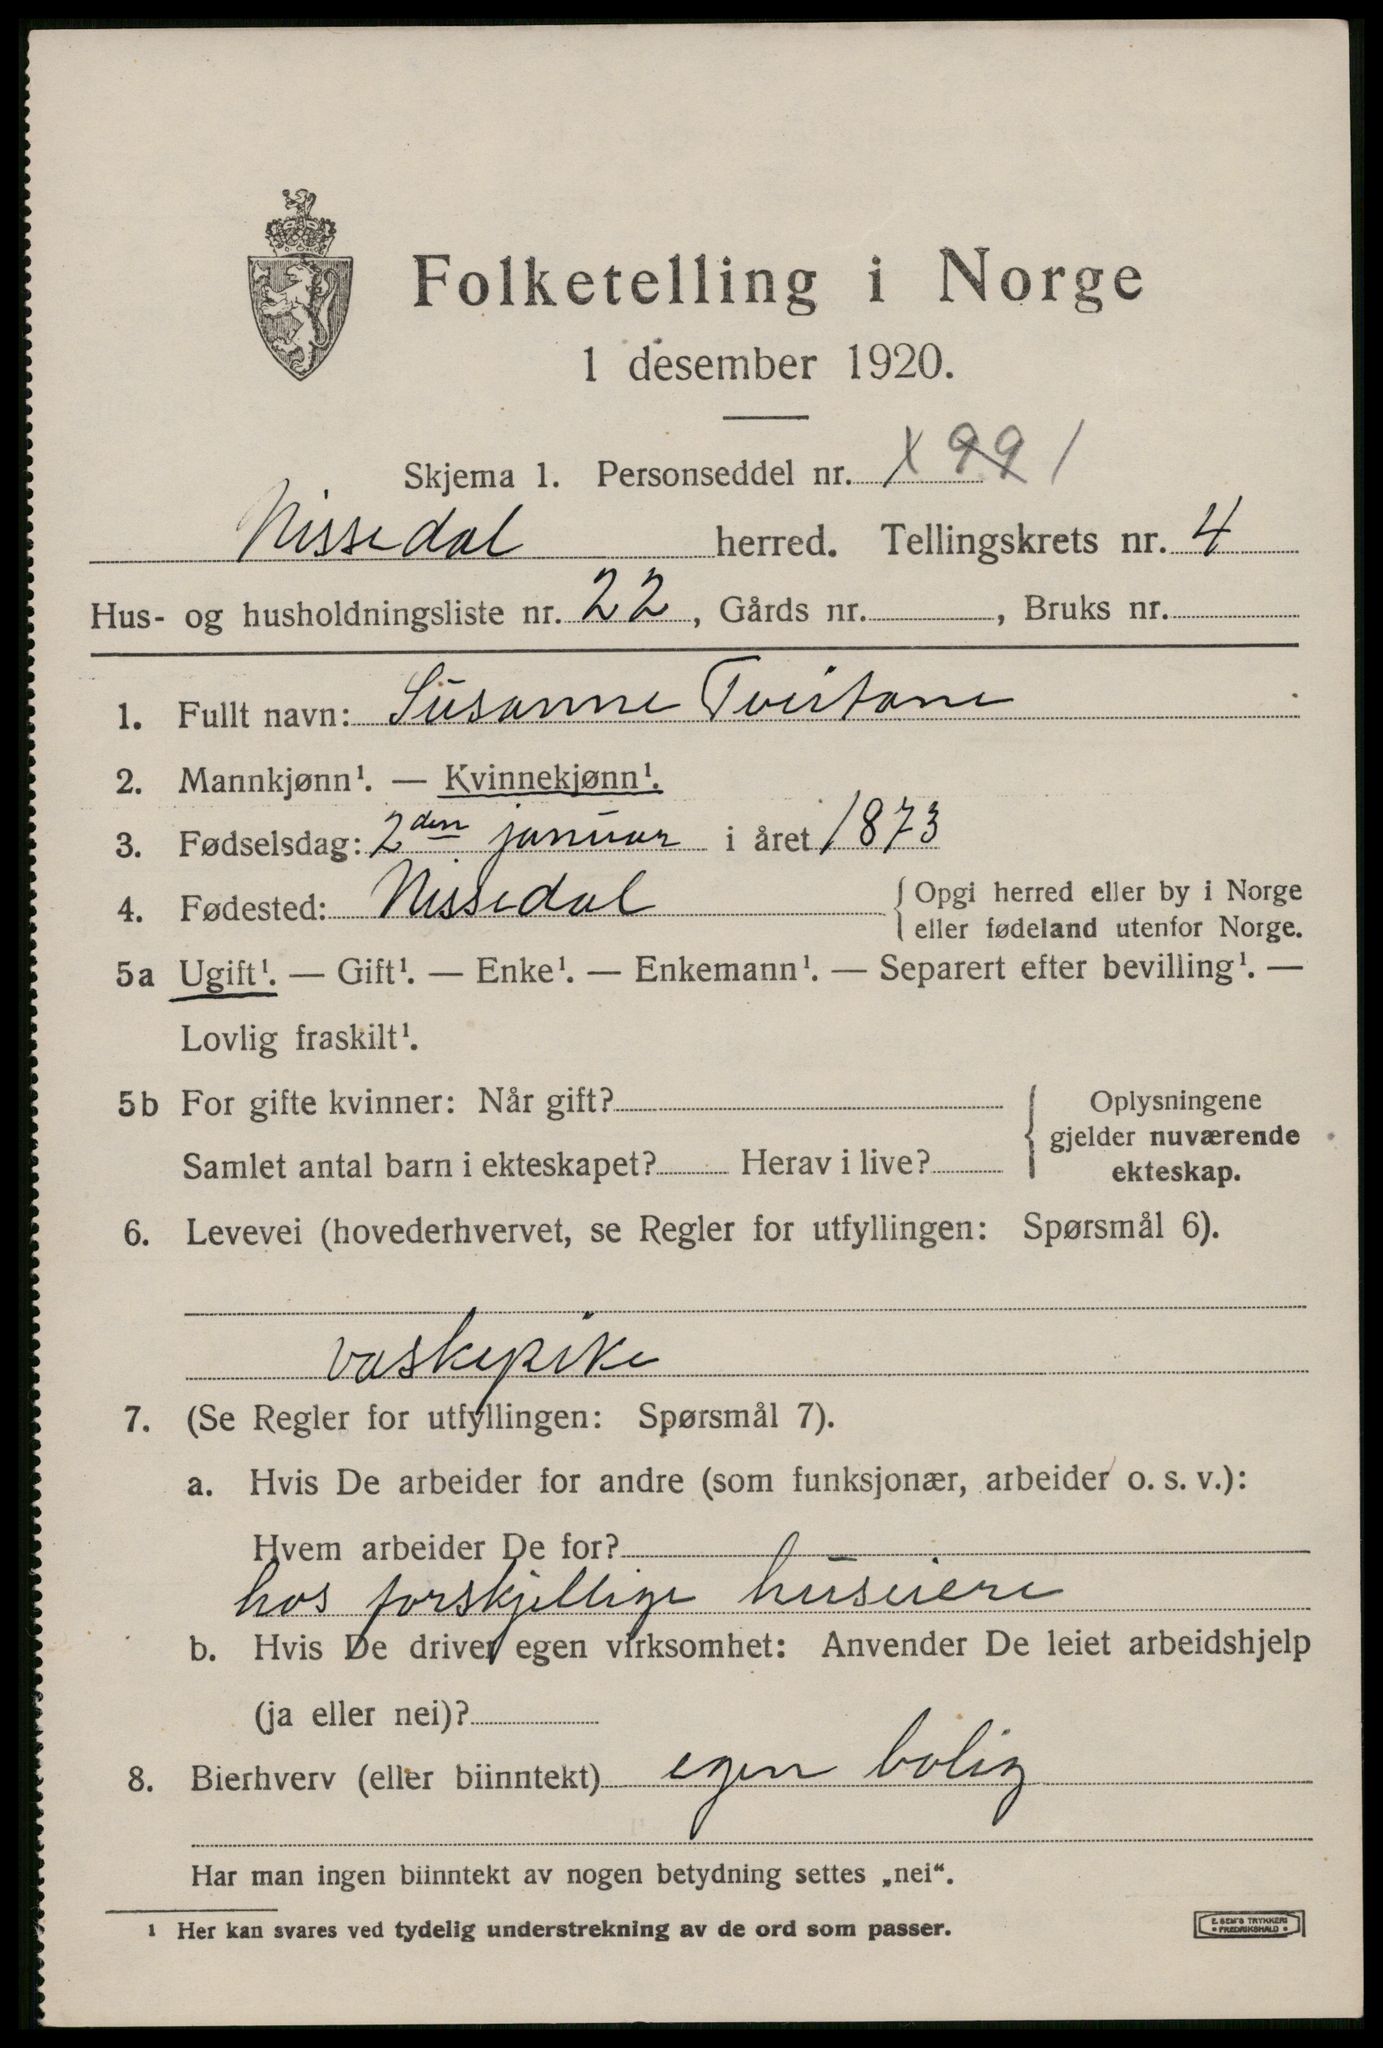 Folketelling i Norge
1 desember 1920.
Skjema 1. Personseddel nr. X 99 1
Nissedal herred. Tellingskrets nr. 4
Hus- og husholdningsliste nr. 22, Gårds nr. , Bruks nr.
1. Fullt navn: Susanne Tveitane
2. Mannkjønn¹. — Kvinnekjønn¹.
3. Fødselsdag: 2den januar i året 1873
4. Fødested: Nissedal { Opgi herred eller by i Norge
eller fødeland utenfor Norge.
5a Ugift¹. — Gift¹. — Enke¹. — Enkemann¹. — Separert efter bevilling¹. —
Lovlig fraskilt¹.
5b For gifte kvinner: Når gift? { Oplysningene
gjelder nuværende
Samlet antal barn i ekteskapet? Herav i live? ekteskap.
6. Levevei (hovederhvervet, se Regler for utfyllingen: Spørsmål 6).
vaskepike
7. (Se Regler for utfyllingen: Spørsmål 7).
a. Hvis De arbeider for andre (som funksjonær, arbeider o. s. v.):
Hvem arbeider De for?
hos forskjellige huseiere
b. Hvis De driver egen virksomhet: Anvender De leiet arbeidshjelp
(ja eller nei)?
8. Bierhverv (eller biinntekt) egen bolig
Har man ingen biinntekt av nogen betydning settes „nei“.
¹ Her kan svares ved tydelig understrekning av de ord som passer.
E. SEM'S TRYKKERI
• FREDRIKSHALD •